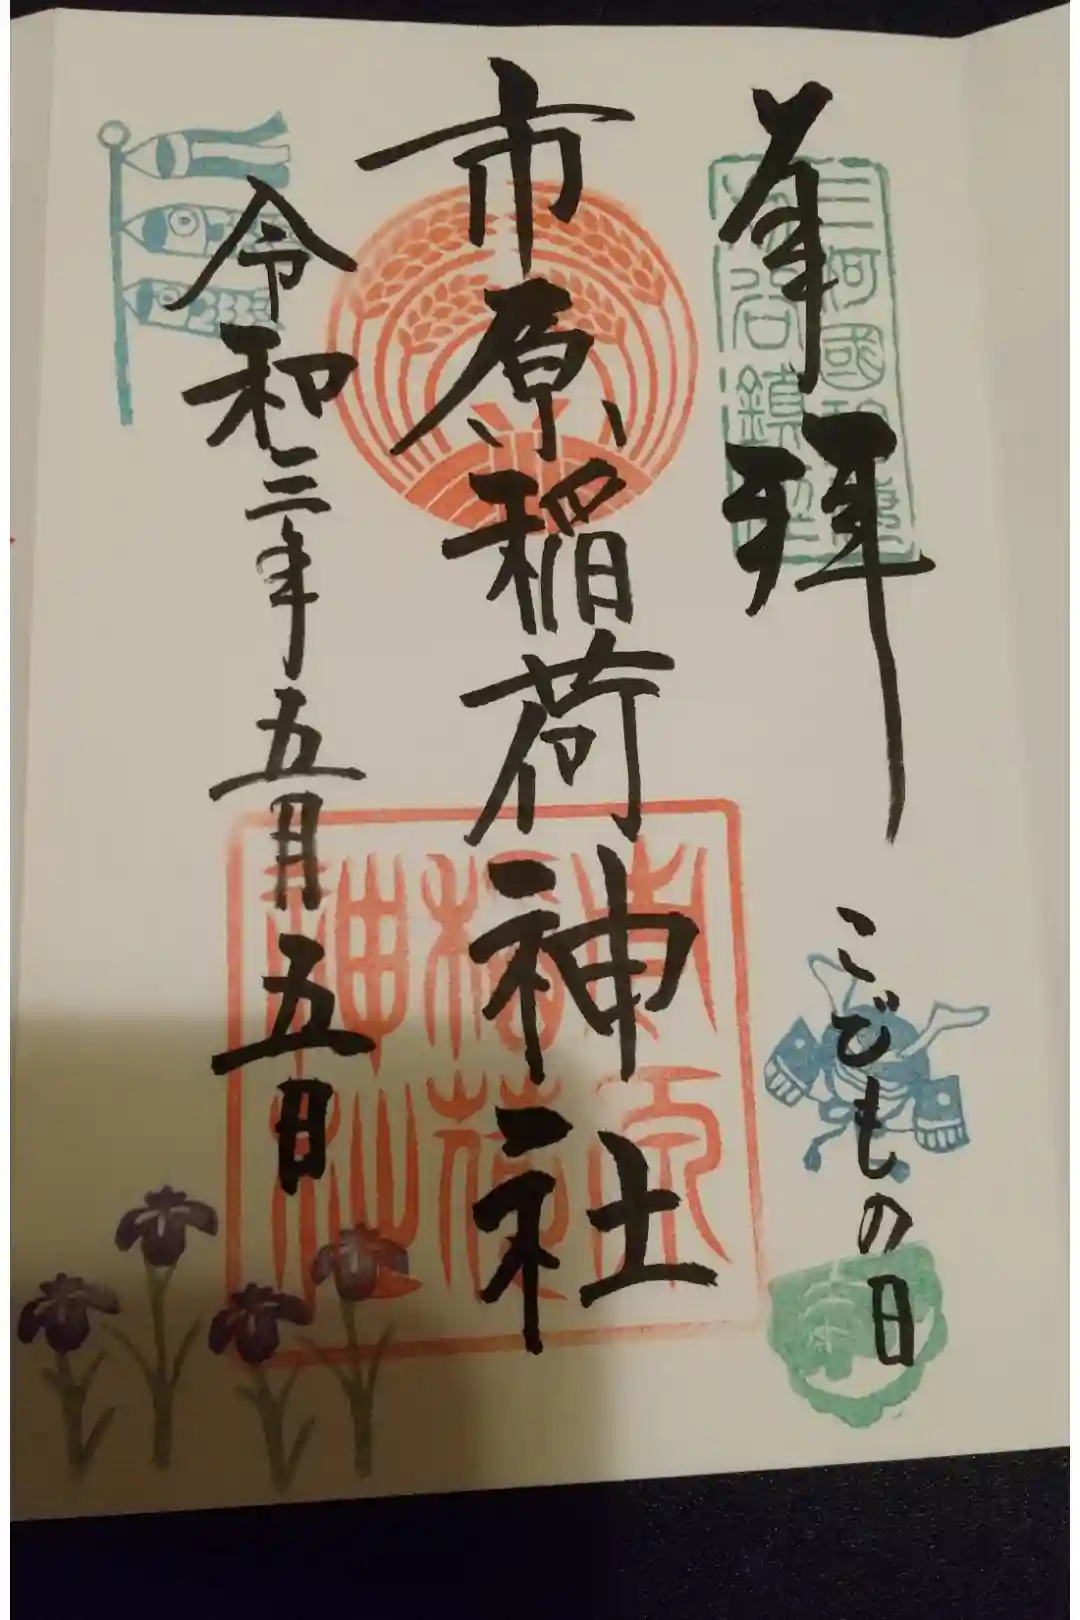 奉拝
こどもの日
市原稲荷神社
令和三年五月五日
三河國
市原稲荷神社